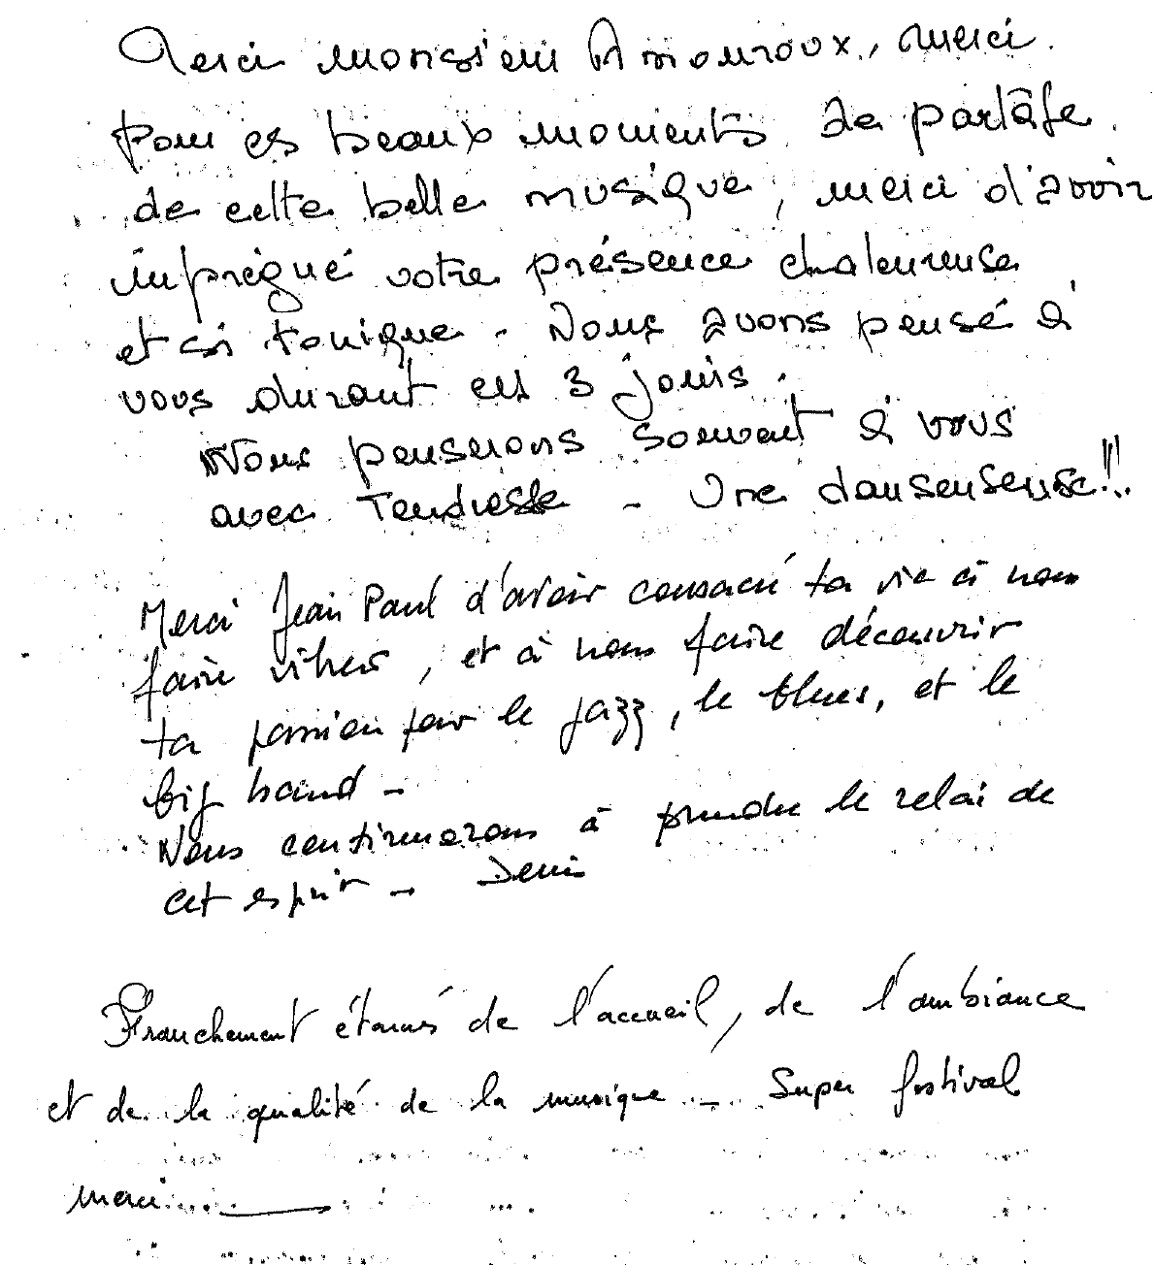 Merci monsieur Amouroux, merci.
pour ces beaux moments de partâge
de cette belle musique, merci d'avoir
impregné votre présence chaleureuse
et si tonique - Nous avons pensé à
vous durant ces 3 jours.
Nous penserons souvent à vous
avec Tendresse - Une danseuse!!!
Merci Jean Paul d'avoir consacré ta vie à nous
faire vibrer, et à nous faire découvrir
ta passion pour le jazz, le blues, et le
big band -
Nous continuerons à prendre le relai de
cet esprit - Denis
Franchement étonnés de l'accueil, de l'ambiance
et de la qualité de la musique - Super festival
merci